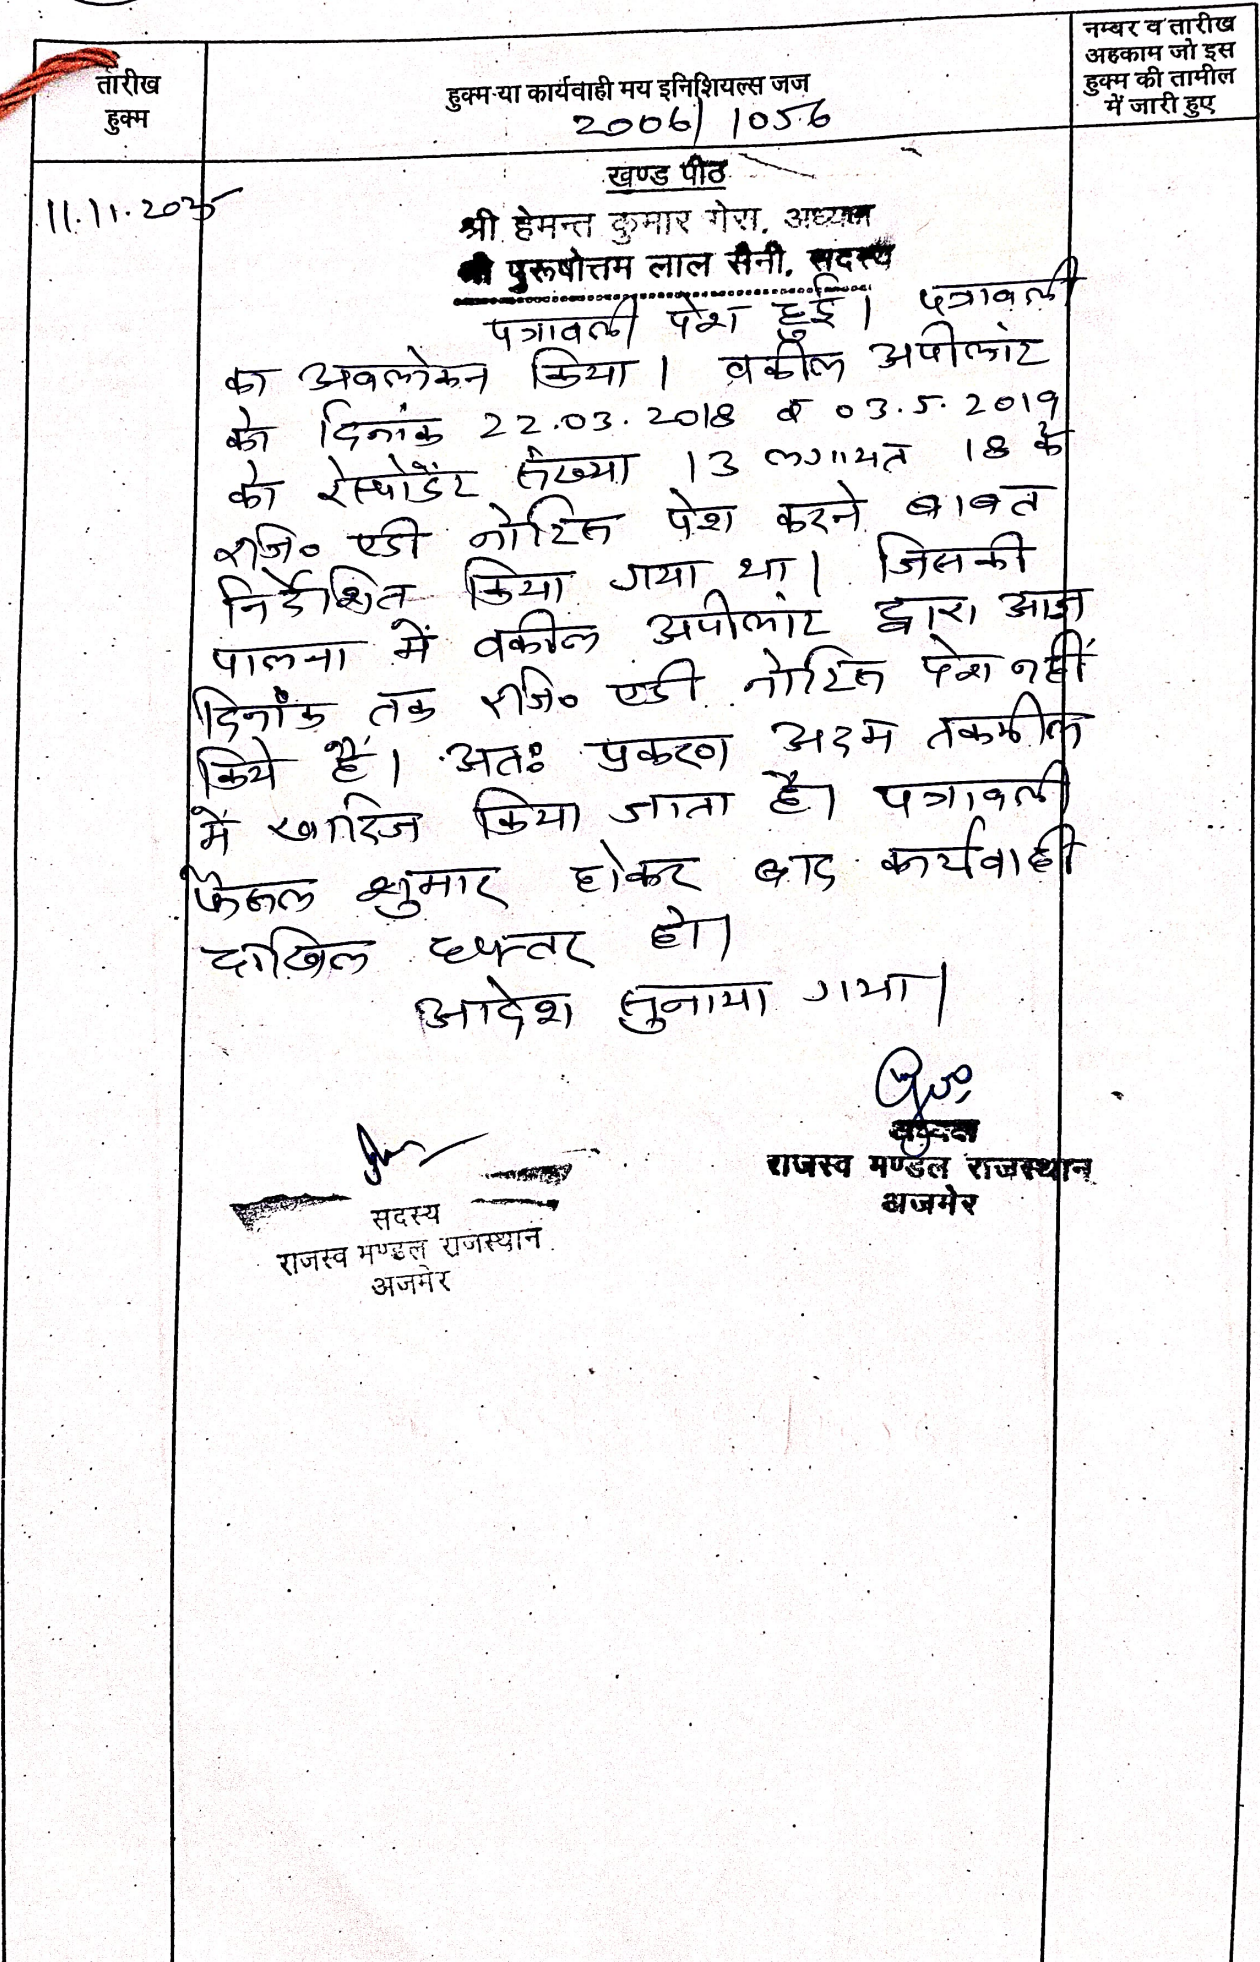 नम्बर व तारीख
अहकाम जो इस
हुक्म की तामील
में जारी हुए
तारीख
हुक्म
हुक्म या कार्यवाही मय इनिशियल्स जज
2006/1056
खण्ड पीठ
11.11.2025
श्री हेमन्त कुमार गेरा, अध्यक्ष
श्री पुरूषोत्तम लाल सैनी, सदस्य
पत्रावली पेश हुई। पत्रावली
का अवलोकन किया। वकील अपीलांट
को दिनांक 22.03.2018 व 03.5.2019
को रेस्पोडेंट संख्या 13 लगायत 18 के
रजि० एडी नोटिस पेश करने बाबत
निर्देशित किया गया था। जिसकी
पालना में वकील अपीलांट द्वारा आज
दिनांक तक रजि० एडी नोटिस पेश नहीं
किये हैं। अतः प्रकरण अदम तकमील
में खारिज किया जाता है। पत्रावली
फैसल शुमार होकर बाद कार्यवाही
दाखिल दफ्तर हो।
आदेश सुनाया गया।
अध्यक्ष
राजस्व मण्डल राजस्थान
अजमेर
सदस्य
राजस्व मण्डल राजस्थान
अजमेर